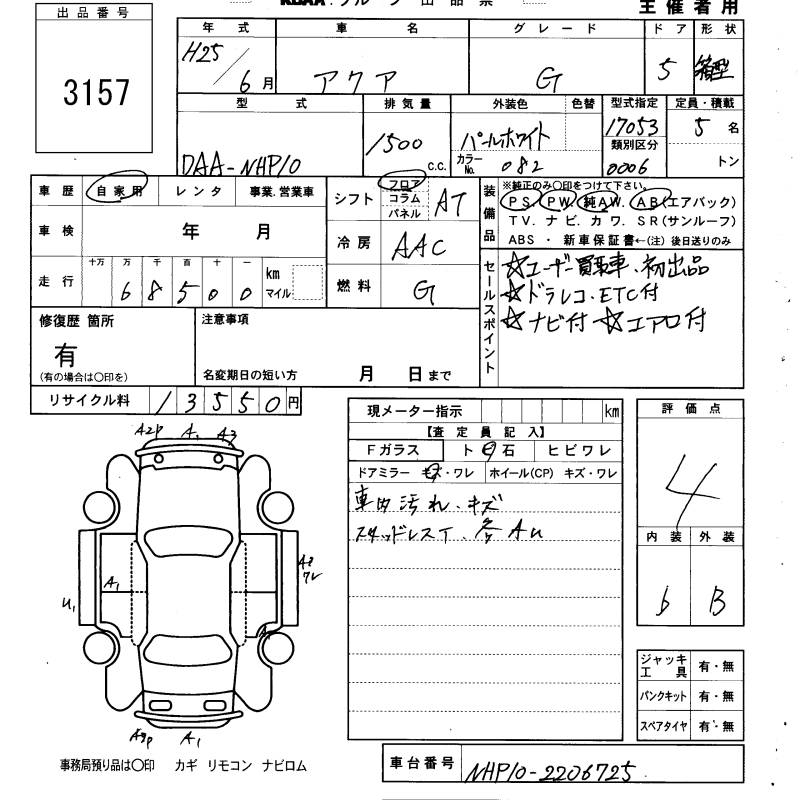 出品番号
3157
主催者用
年式 車名 グレード ドア 形状
H25/6月 アクア G 5 箱型
型式 排気量 外装色 色替 型式指定 定員・積載
DAA-NHP10 1500 C.C. パールホワイト 17053 5名
カラーNo. 082 類別区分 0006 トン
車歴 自家用 レンタ 事業.営業車
シフト フロア コラム パネル AT
装備品
※純正のみ○印をつけて下さい。
PS PW 純AW. AB(エアバック)
TV. ナビ. カワ. SR(サンルーフ)
ABS ・ 新車保証書←(注) 後日送りのみ
車検 年 月
冷房 AAC
走行 十万 万 千 百 十 一
68500 km マイル
燃料 G
セールスポイント
☆ユーザー買取車.初出品
☆ドラレコ.ETC付
☆ナビ付 ☆エアロ付
修復歴 箇所
有
(有の場合は○印を)
注意事項
名変期日の短い方 月 日まで
リサイクル料 13550円
現メーター指示 km
【査定員記入】
Fガラス ト石 ヒビワレ
ドアミラー キズ・ワレ ホイール(CP) キズ・ワレ
車内汚れ.キズ
スタッドレスT.各AU
評価点
4
内装 外装
b B
A2P A1 A3
A1
U1
A2
ワレ
A1
ジャッキ工具 有・無
パンクキット 有・無
スペアタイヤ 有・無
事務局預り品は○印 カギ リモコン ナビロム
車台番号 NHP10-2206725